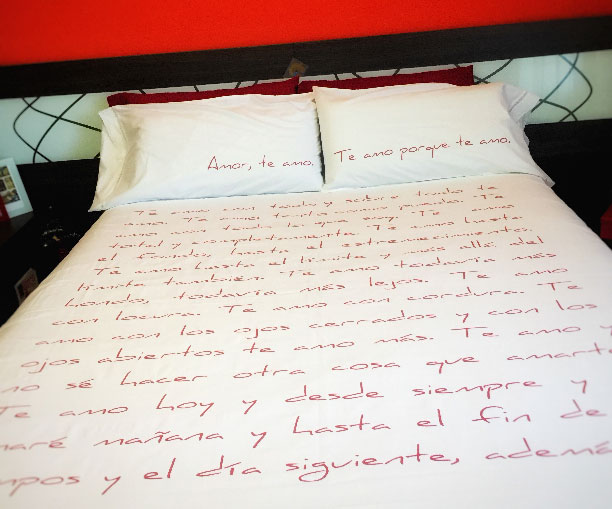 Amor, te amo.
Te amo porque te amo.
Te amo con todo y sobre todo te
amo. Te amo,
amo con todo lo que soy. Te amo
total y completamente. Te amo hasta
el fondo, hasta el estremecimiento.
Te amo hasta el límite y más allá del
límite también. Te amo todavía más
hondo, todavía más lejos. Te amo
con locura. Te amo con cordura. Te
amo con los ojos cerrados y con los
ojos abiertos te amo más. Te amo y
no sé hacer otra cosa que amart
Te amo hoy y desde siempre y
maré mañana y hasta el fin de
mpos y el día siguiente, ademá